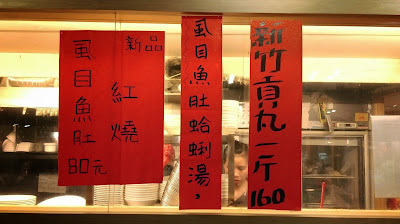 新品
紅燒
虱目魚肚
80元
虱目魚肚蛤蜊湯,
新竹貢丸一斤
160